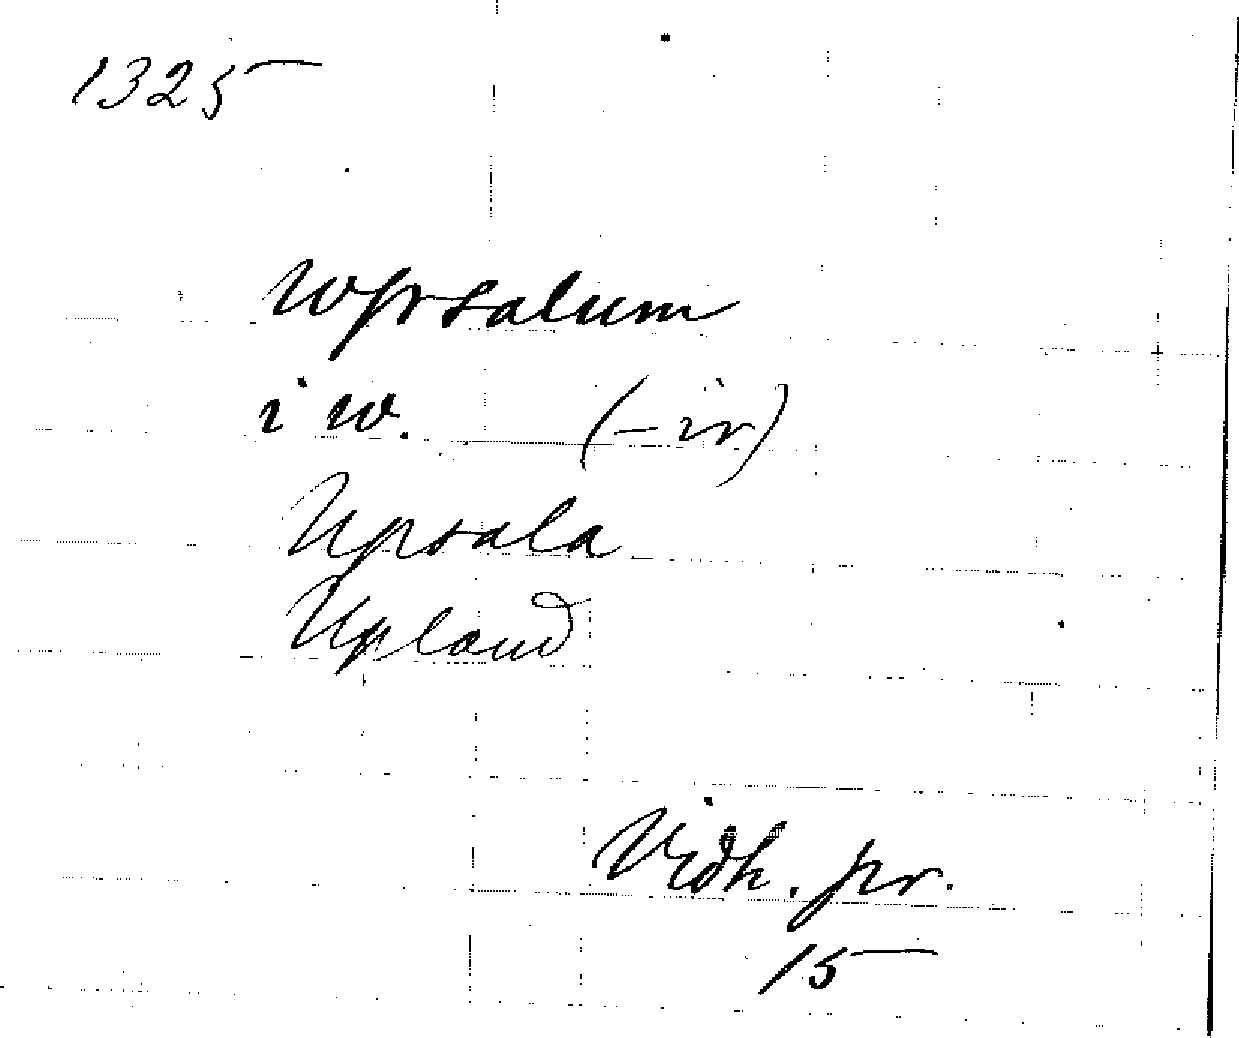 1325
wpsalum
i w. (-ir)
Upsala
Upland
Vidh. pr.
15